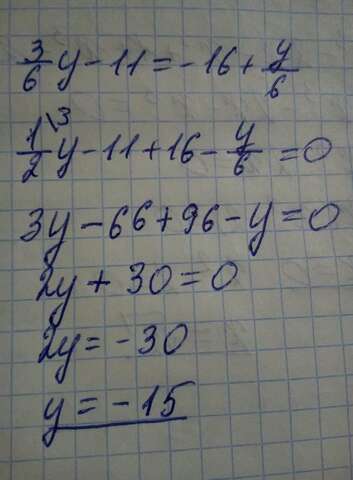 3/6 y - 11 = -16 + y/6
1\3/2 y - 11 + 16 - y/6 = 0
3y - 66 + 96 - y = 0
2y + 30 = 0
2y = -30
y = -15